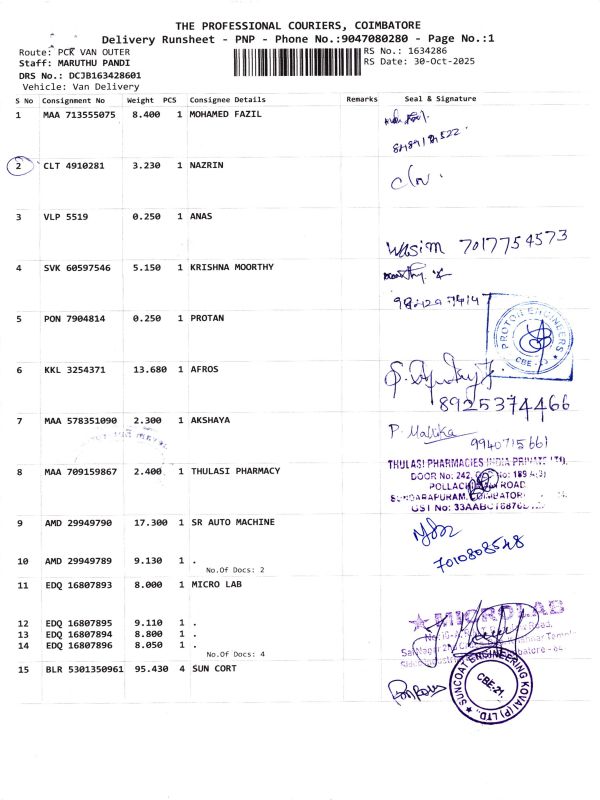 THE PROFESSIONAL COURIERS, COIMBATORE
Delivery Runsheet - PNP - Phone No.:9047080280 - Page No.:1
Route: PCK VAN OUTER
RS No.: 1634286
Staff: MARUTHU PANDI
RS Date: 30-Oct-2025
DRS No.: DCJB163428601
Vehicle: Van Delivery
S No Consignment No Weight PCS Consignee Details Remarks Seal & Signature
1 MAA 713555075 8.400 1 MOHAMED FAZIL
2 CLT 4910281 3.230 1 NAZRIN
3 VLP 5519 0.250 1 ANAS
Wasim 7017754573
4 SVK 60597546 5.150 1 KRISHNA MOORTHY
5 PON 7904814 0.250 1 PROTAN
PROTON ENGINEERS
6 KKL 3254371 13.680 1 AFROS
8925374466
7 MAA 578351090 2.300 1 AKSHAYA
P. Mallika 9940715661
8 MAA 709159867 2.400 1 THULASI PHARMACY
THULASI PHARMACIES INDIA PRIVATE LTD.
DOOR No: 242, No: 189
POLLACHI ROAD
SUNDARAPURAM, COIMBATORE
GST No:
9 AMD 29949790 17.300 1 SR AUTO MACHINE
7010808548
10 AMD 29949789 9.130 1 .
No.Of Docs: 2
11 EDQ 16807893 8.000 1 MICRO LAB
MICROLAB
12 EDQ 16807895 9.110 1 .
13 EDQ 16807894 8.800 1 .
14 EDQ 16807896 8.050 1 .
No.Of Docs: 4
15 BLR 5301350961 95.430 4 SUN CORT
SUNCOAT ENGINEERING KOVAI (P) LTD.,
CBE-21.